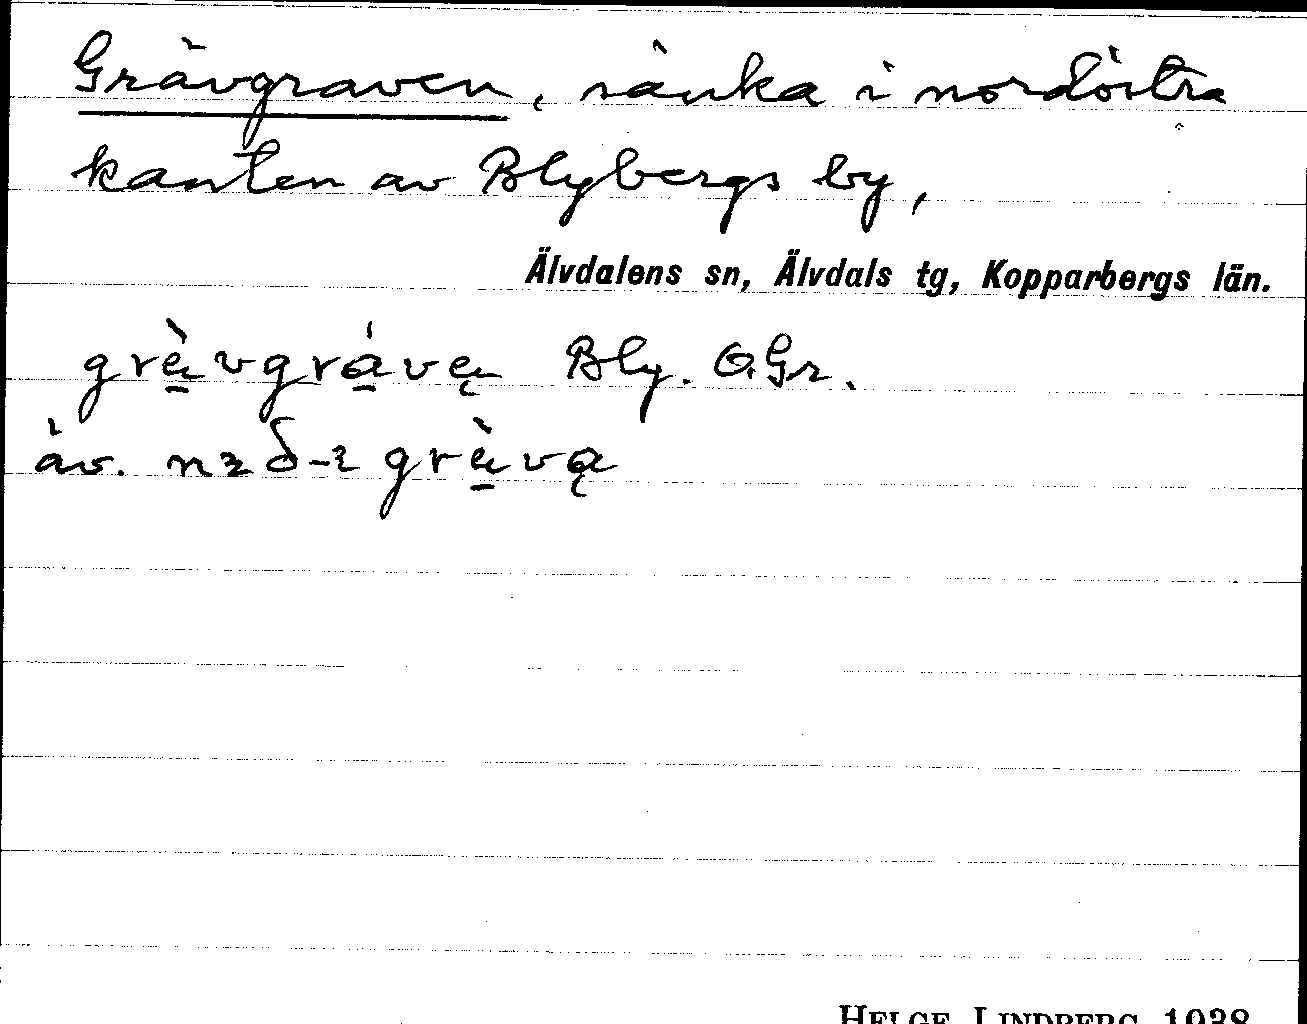 Grävgraven, sänka i nordöstra
kanten av Blybergs by,
Älvdalens sn, Älvdals tg, Kopparbergs län.
Bly. O.Gr.
äv.
HELGE LINDBERG 1938